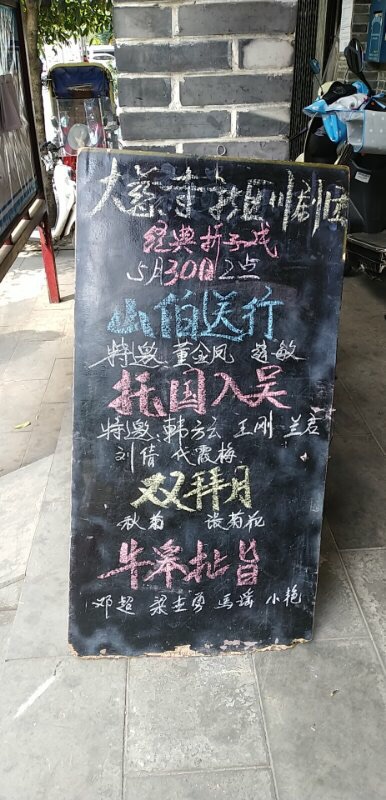 大慈寺社区川剧团
经典折子戏
5月30日2点
山伯送行
特邀:董金凤 赵敏
托国入吴
特邀:韩方云 王刚 兰君
刘倩 代霞梅
双拜月
秋菊 张菊花
牛皋扯旨
邓超 梁志勇 马瑶 小艳